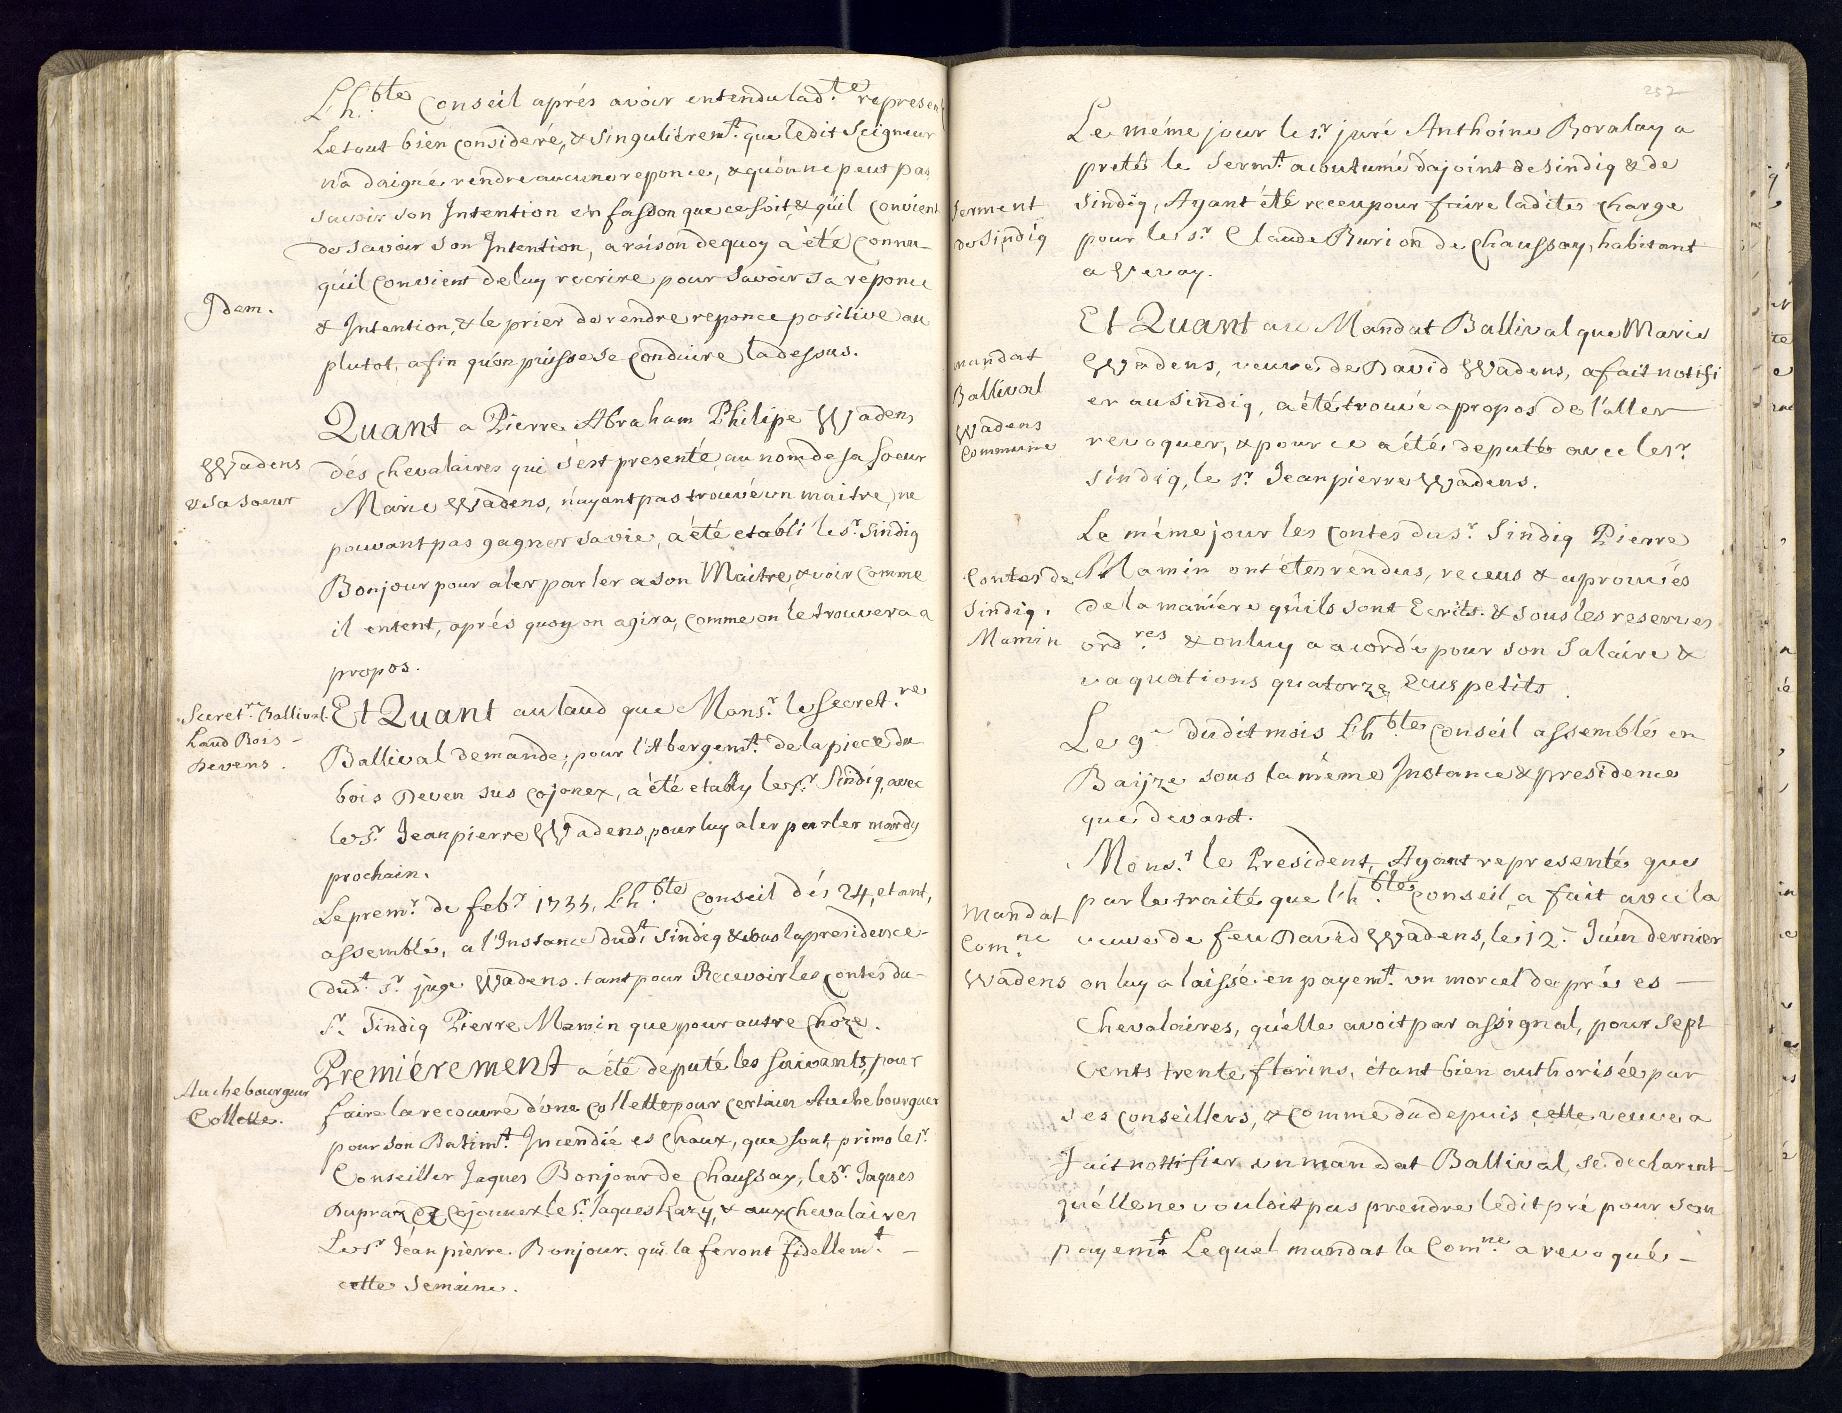 L'h.ble Conseil aprés avoir entendu lad.te represen
Le tout bien consideré, & singuliérem.t que ledit Seigneur
n'a daigné rendre aucune reponce, & qu'on ne peut pas
savoir son Intention en fasson que ce soit, & qu'il convient
de savoir son Intention, a raison de quoy a été connu
Idem.
qu'il convient de luy recrire pour savoir sa reponce
& Intention, & le prier de rendre reponce positive au
plutot, afin qu'on puisse se conduire la dessus.
Quant a Pierre Abraham Philipe Wadens
Wadens
& sa soeur
dés Chevalaires qui s'est presenté au nom de sa soeur
Marie Wadens, n'ayant pas trouvé un maitre, ne
pouvant pas gagner sa vie, a été etabli le s.r Sindiq
Bonjour pour aler parler a son Maitre, & voir comme
il entent, aprés quoy on agira, comme on le trouvera a
propos.
Secret.re Ballival
Laud Bois
Devens.
Et Quant au laud que Mons.r le Secret.re
Ballival demande, pour l'Abergem.t de la piece du
bois Deven sus Cojonex, a été etably le s.r Sindiq, avec
le s.r Jean pierre Wadens, pour luy aler parler mardy
prochain.
Le prem.r de feb.r 1735, L'h.ble Conseil dés 24, etant,
assemblé, a l'Instance dud.t Sindiq & sous la presidence
dud.t s.r juge Wadens. tant pour Recevoir les Contes du
s.r Sindiq Pierre Mamin que pour autre Choze.
Premiérement a été député les suivants, pour
Auchebourgeur
Collette.
faire la recouvre d'une Collette pour certain Auchebourguer
pour son Batim.t Incendié es Chaux, que sont, primo le s.r
Conseiller Jaques Bonjour de Chaussay, le s.r Jaques
Dupraz de Cojonnex le s.r Jaques Lazy, & aux Chevalaires
Le s.r Jean pierre Bonjour. qui la feront fidellem.t
cette semaine.
252
Le méme jour le s.r juré Anthoine Boralay a
preté le serm.t acoutumé d'ajoint de Sindiq & de
Serment
de Sindiq
Sindiq, Ayant été receu pour faire ladite charge
pour le s.r Claude Burion de Chaussay, habitant
a Vevay.
Et Quant au Mandat Ballival que Marie
mandat
Ballival
Wadens
Commune
Wadens, veuve de David Wadens, a fait notifi
er au Sindiq, a été trouvé a propos de l'aller
revoquer, & pour ce a été deputé avec le s.r
Sindiq, le s.r Jean pierre Wadens.
Le méme jour les Contes du s.r Sindiq Pierre
Contes de
Sindiq.
Mamin
Mamin ont étés rendus, receus & aprouvés
de la maniére qu'ils sont Ecrits. & sous les reserves
ord.res & on luy a acordé pour son Salaire &
vaquations quatorze ecus petits.
Le 9.e dudit mois L'h.ble Conseil assemblé en
Baijze sous la méme Instance & presidence
que devant.
Mons.r le President, Ayant representé que
Mandat
Com.ne
Wadens
par le traité que l'h.ble Conseil, a fait avec la
veuve de feu David Wadens, le 12.e Juin dernier
on luy a laissé en payem.t un morcel de pré es
Chevalaires, qu'elle avoit par assignal, pour sept
Cents trente florins, étant bien authorisée par
ses conseillers, & comme du depuis cette veuve a
fait nottifier un mandat Ballival, se declarent
qu'elle ne vouloit pas prendre ledit pré pour son
payem.t Lequel mandat la Com.ne a revoqué